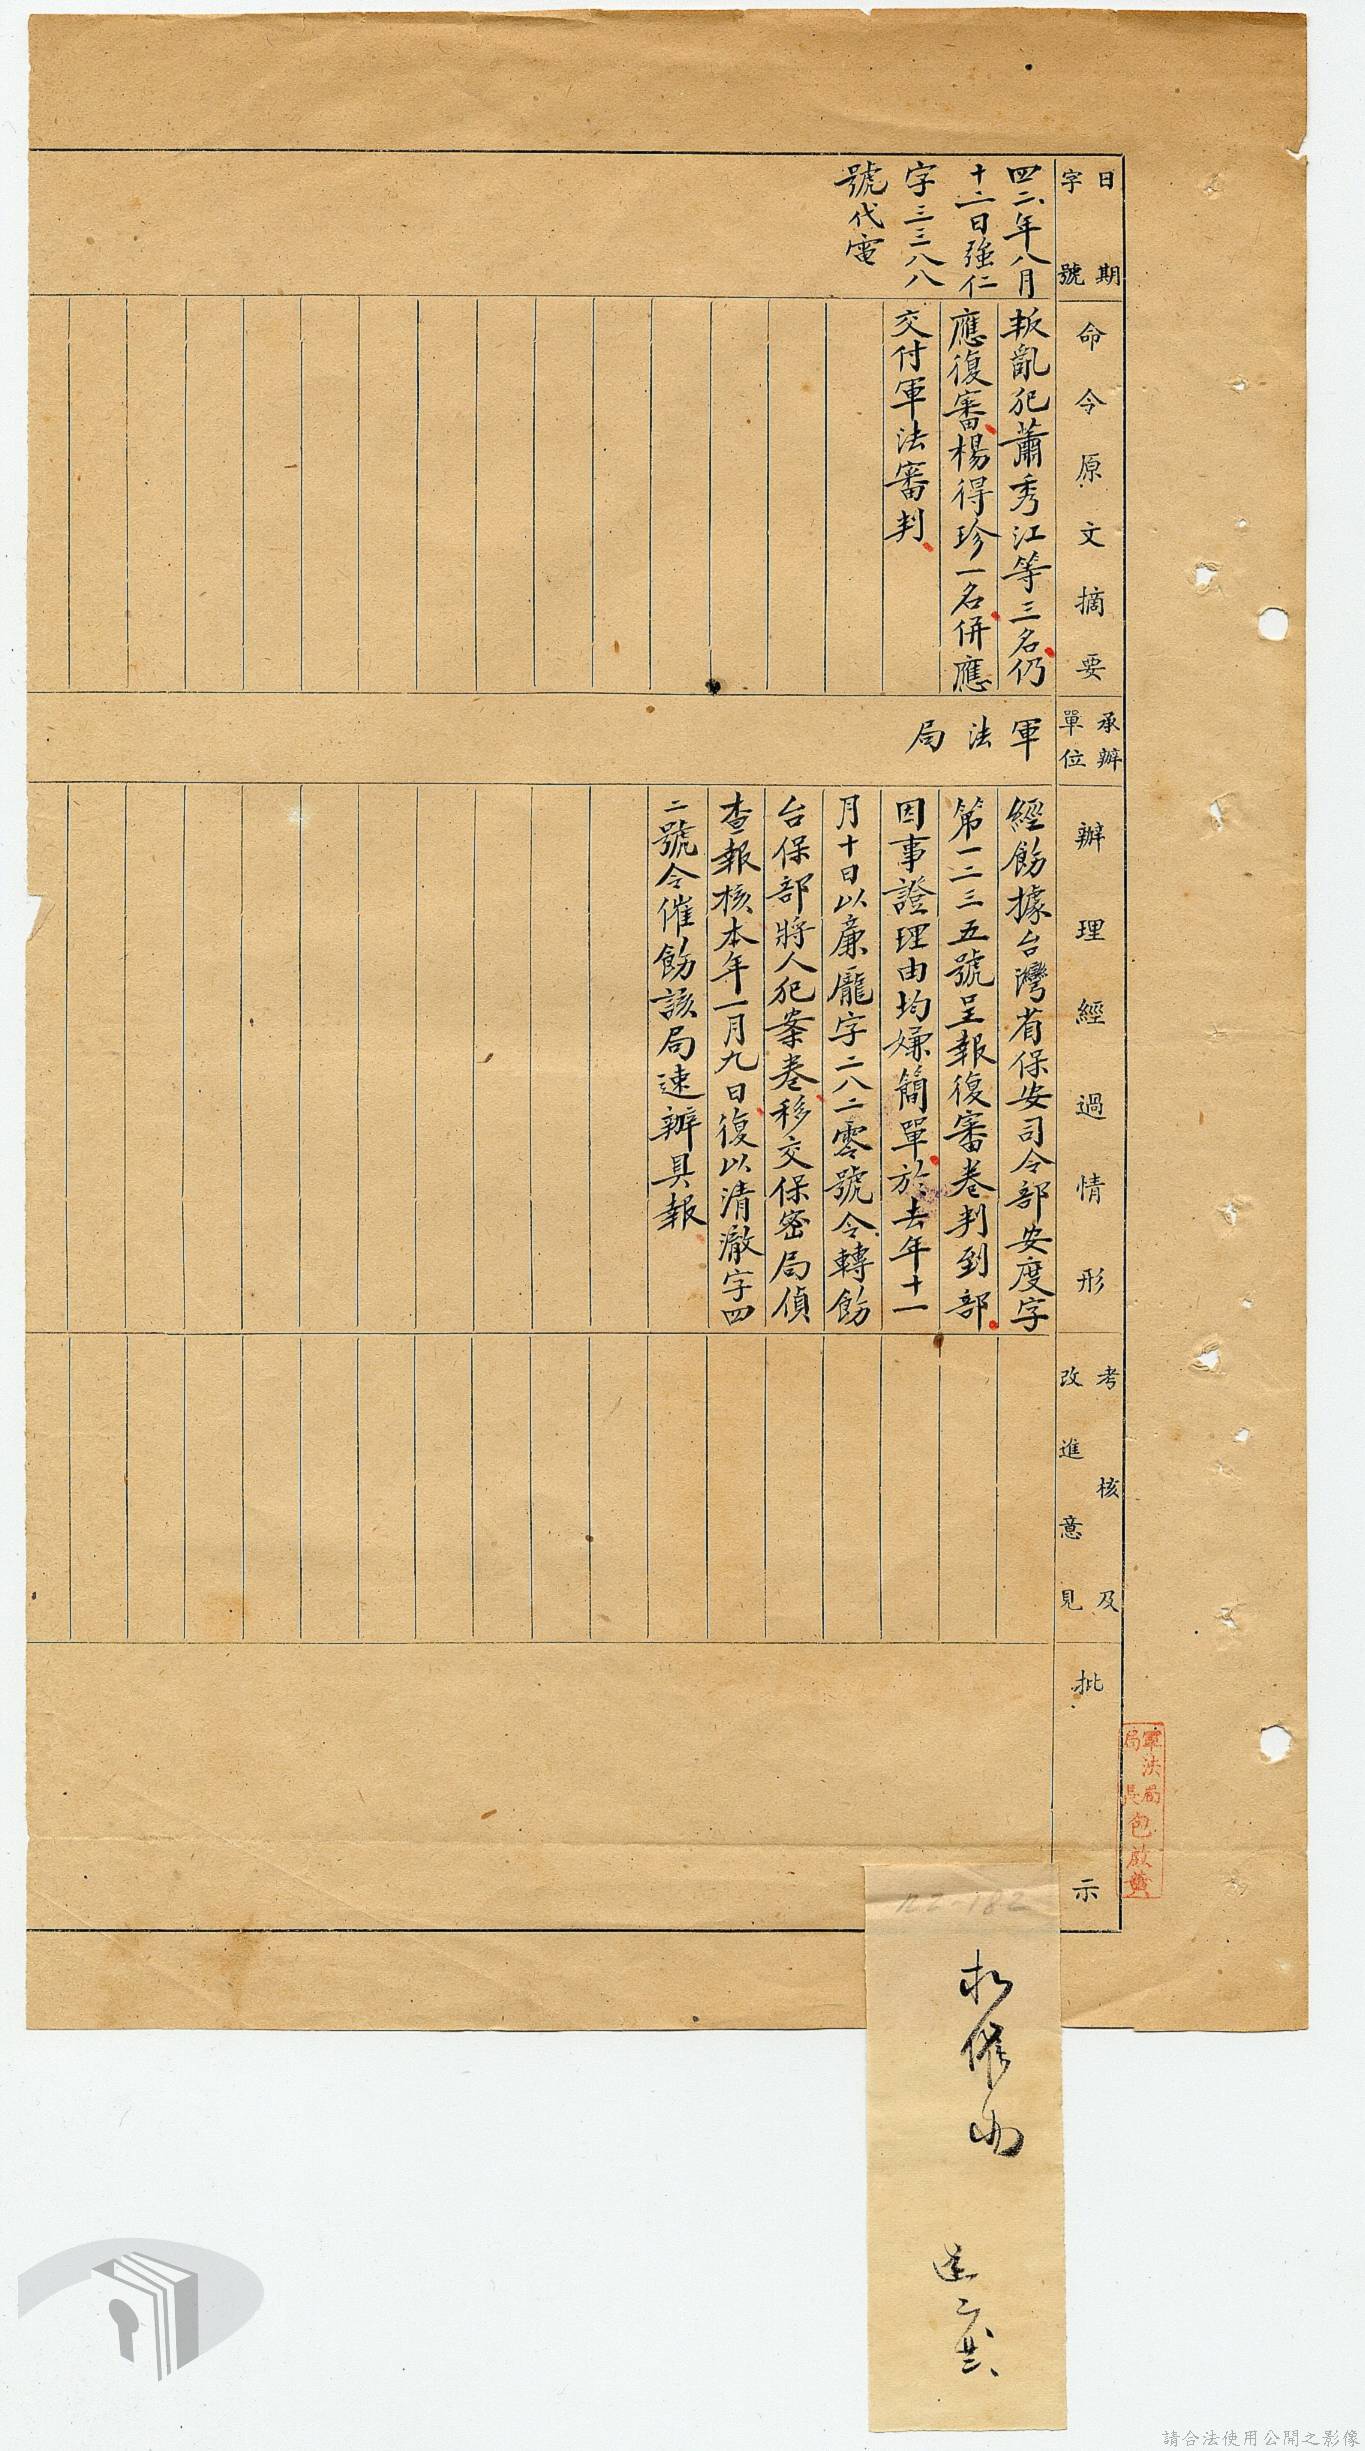 日期
字號
四二年八月
十二日強仁
字三三八八
號代電
命令原文摘要
叛亂犯蕭秀江等三名仍
應復審楊得珍一名併應
交付軍法審判
承辦
單位
軍法局
辦理經過情形
經飭據台灣省保安司令部安度字
第一二三五號呈報復審卷判到部
因事證理由均嫌簡單於去年十一
月十日以廉龐字二八二零號令轉飭
台保部將人犯案卷移交保密局偵
查報核本年一月九日復以清澈字四
二號令催飭該局速辦具報
考核及
改進意見
批示
軍法局
局長包啟黃
請合法使用公開之影像